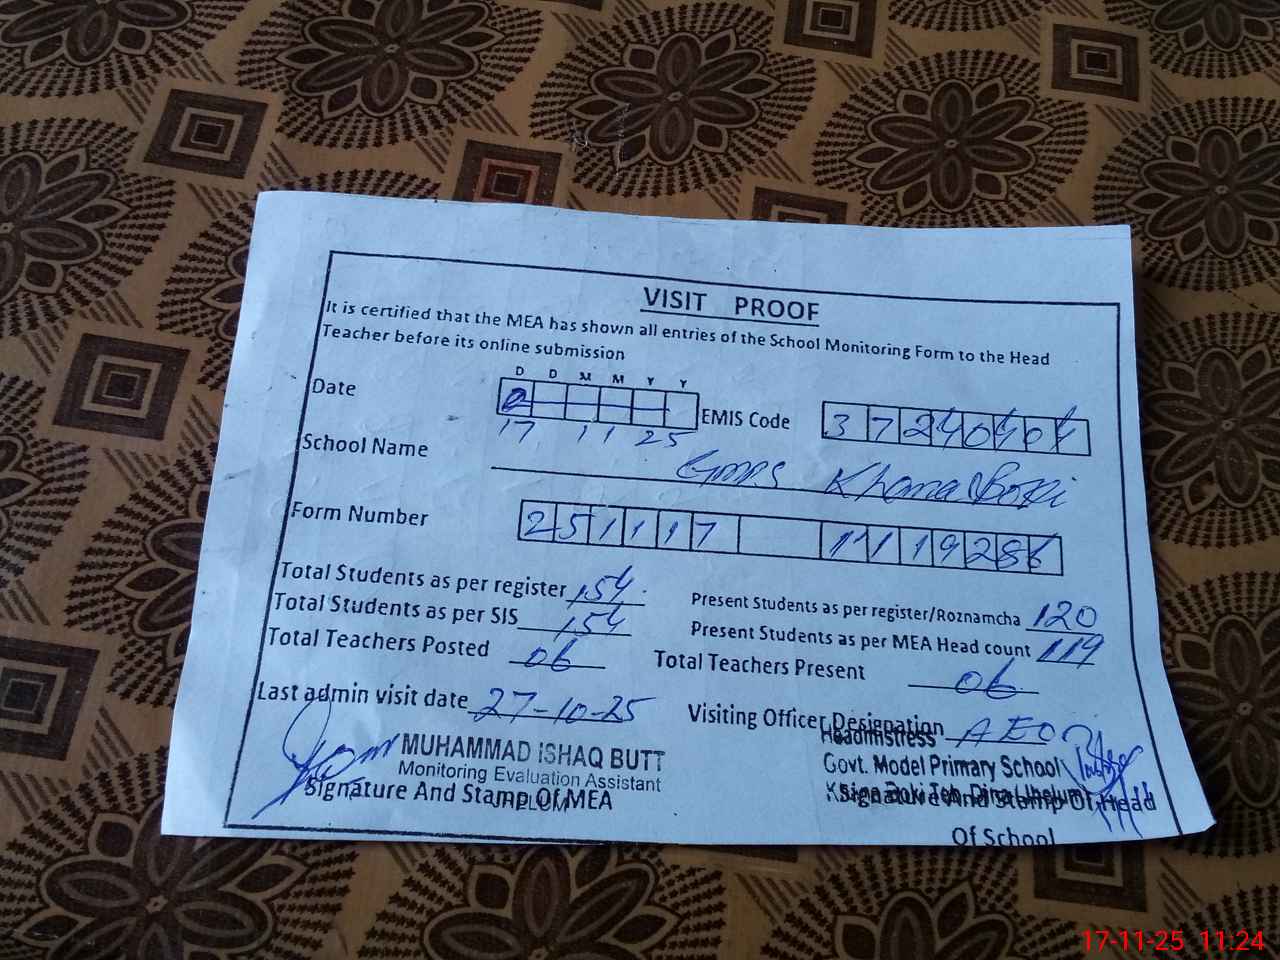 VISIT PROOF
It is certified that the MEA has shown all entries of the School Monitoring Form to the Head
Teacher before its online submission
D D M M Y Y
Date EMIS Code 3 7 2 4 0 4 0
17 11 25
School Name GMPS Khana Boki
Form Number 2 5 1 1 1 7 1 1 1 9 2 8 6
Total Students as per register 154 Present Students as per register/Roznamcha 120
Total Students as per SIS 154 Present Students as per MEA Head count 119
Total Teachers Posted 06 Total Teachers Present 06
Last admin visit date 27-10-25 Visiting Officer Designation AEO
MUHAMMAD ISHAQ BUTT Headmistress
Monitoring Evaluation Assistant Govt. Model Primary School
JHELUM Boki Teh. Dina (Jhelum)
Signature And Stamp Of MEA Signature And Stamp Of Head
Of School
17-11-25 11:24